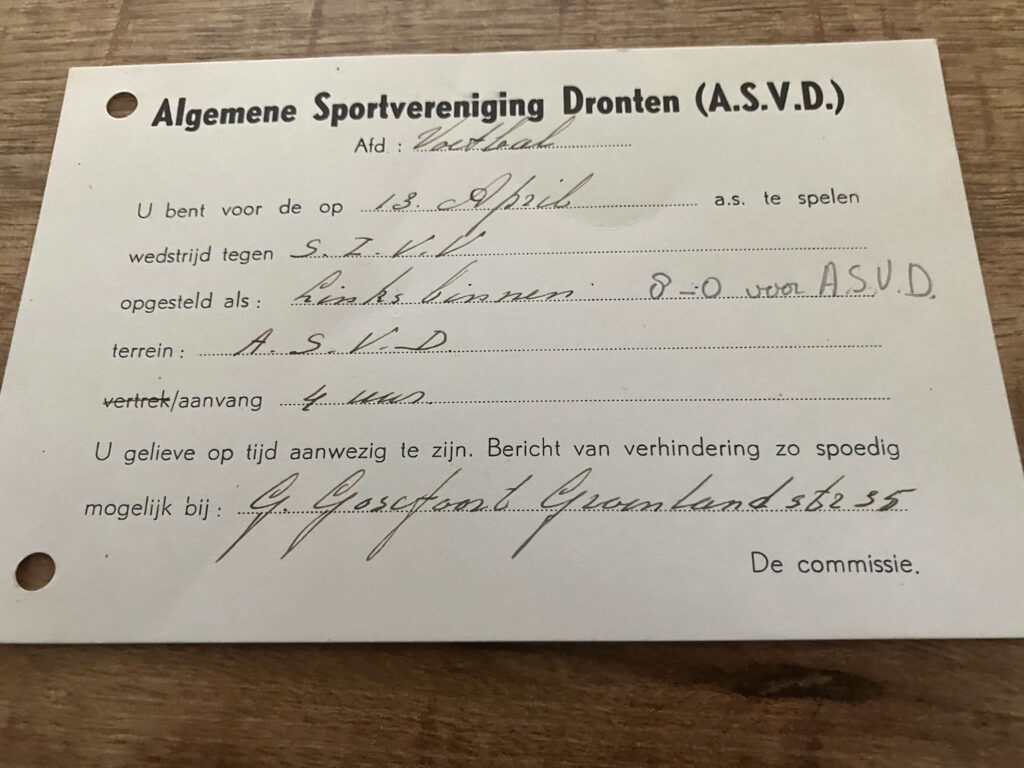 Algemene Sportvereniging Dronten (A.S.V.D.)
Afd. : Voetbal
U bent voor de op 13. April a.s. te spelen
wedstrijd tegen S.I.V.V
opgesteld als : Links binnen 8-0 voor A.S.V.D.
terrein : A.S.V.D.
vertrek/aanvang 4 uur.
U gelieve op tijd aanwezig te zijn. Bericht van verhindering zo spoedig
mogelijk bij : G. Gosefoort Groenland str 35
De commissie.